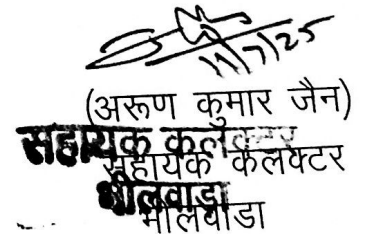 11/7/25
(अरूण कुमार जैन)
सहायक कलेक्टर
सहायक कलेक्टर
भीलवाडा
भीलवाडा